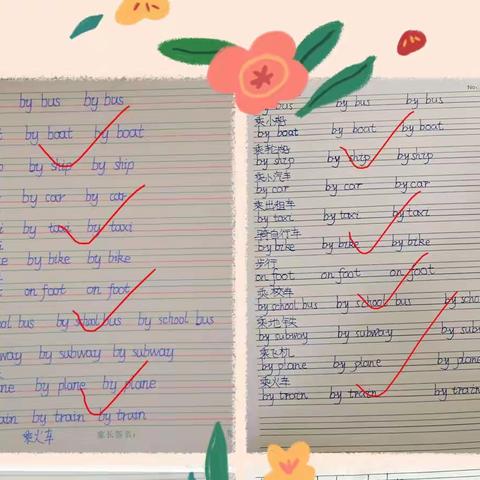 by bus by bus
by boat by boat
by ship by ship
by car by car
by taxi by taxi
by bike by bike
on foot on foot
ool bus by school bus by school bus
way by subway by subway
ne by plane by plane
ain by train by train
乘火车 家长签名:
No:
bus by bus by bus
乘小船
by boat by boat by boat
乘轮船
by ship by ship by ship
乘小汽车
by car by car by car
乘出租车
by taxi by taxi by taxi
骑自行车
by bike by bike by bike
步行
on foot on foot on foot
乘校车
by school bus by school bus by scho
乘地铁
by subway by subway by sub
乘飞机
by plane by plane by plane
乘火车
by train by train by train